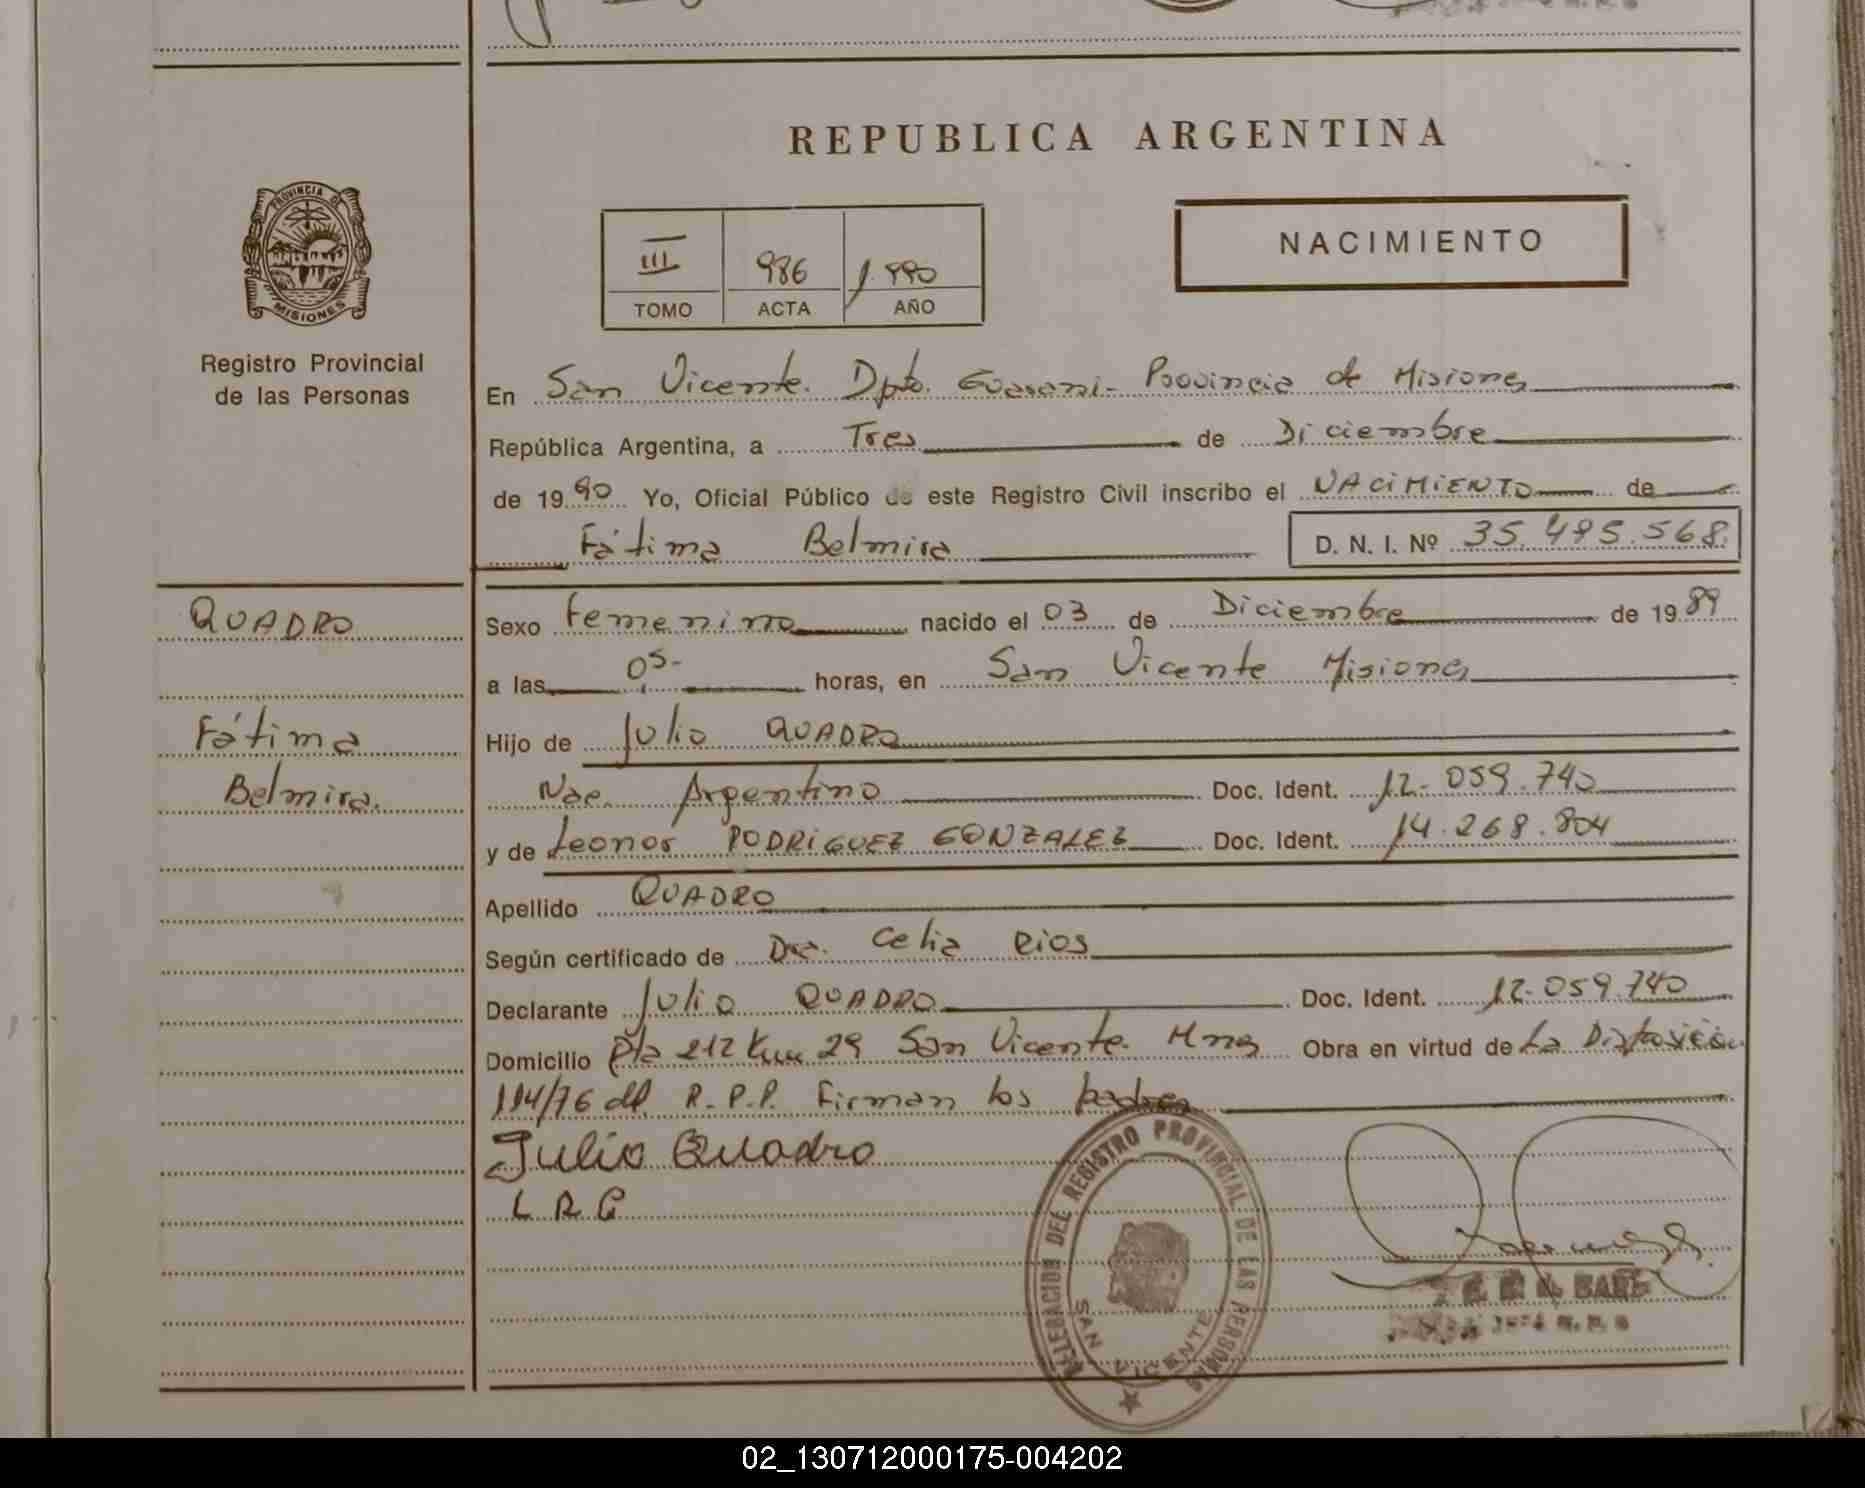 REPUBLICA ARGENTINA
PROVINCIA DE MISIONES
Registro Provincial
de las Personas
III 986 1.990
TOMO ACTA AÑO
NACIMIENTO
En San Vicente. Dpto. Guarani- Provincia de Misiones
República Argentina, a Tres de Diciembre
de 1990 Yo, Oficial Público de este Registro Civil inscribo el NACIMIENTO de
Fátima Belmira D. N. I. Nº 35.495.568.
QUADRO
Fátima
Belmira.
Sexo Femenino nacido el 03 de Diciembre de 1989
a las 05- horas, en San Vicente Misiones
Hijo de Julio QUADRO
Nac. Argentino Doc. Ident. 12-059.740
y de Leonor RODRIGUEZ GONZALEZ Doc. Ident. 14.268.804
Apellido QUADRO
Según certificado de Dra. Celia Rios
Declarante Julio QUADRO Doc. Ident. 12-059.740
Domicilio Rta 212 Km 29 San Vicente. Mnes Obra en virtud de La Disposición
114/76 del R.P.P. Firman los padres
Julio Quadro
L R G
DELEGACION DEL REGISTRO PROVINCIAL DE LAS PERSONAS
SAN VICENTE
02_130712000175-004202